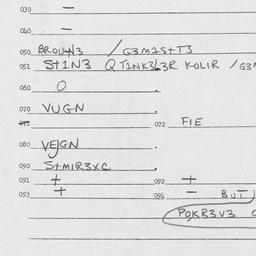 030 —
040 —
050 BROUN3 / G3M1StT3
051 St1N3 QT1NK3L3R KOLIR / G3M
060 O .
070 VUGN .
071 072 FIE
080 VEJGN .
090 StMIR3XC .
091 + 092 +
093 + 094 — BUT
PQKR3V3